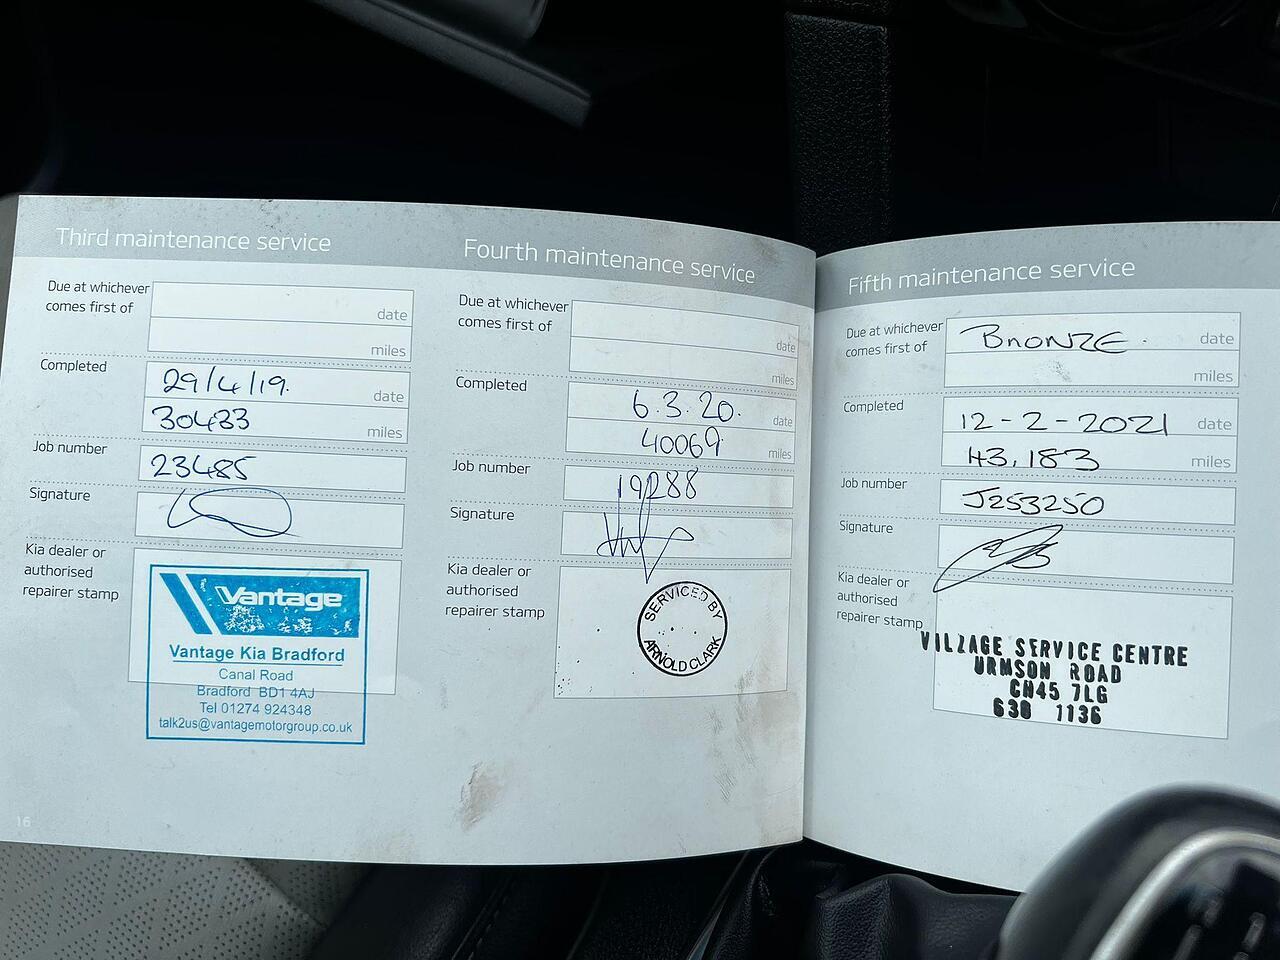 Third maintenance service
Due at whichever
comes first of
date
miles
Completed
29/4/19.
date
30433
miles
Job number
23485
Signature
Kia dealer or
authorised
repairer stamp
Vantage
Vantage Kia Bradford
Canal Road
Bradford BD1 4AJ
Tel 01274 924348
talk2us@vantagemotorgroup.co.uk
16
Fourth maintenance service
Due at whichever
comes first of
date
miles
Completed
6.3.20.
date
40069
miles
Job number
19288
Signature
Kia dealer or
authorised
repairer stamp
SERVICED BY
ARNOLD CLARK
Fifth maintenance service
Due at whichever
comes first of
BRONZE.
date
miles
Completed
12-2-2021
date
43,183
miles
Job number
J253250
Signature
Kia dealer or
authorised
repairer stamp
VILLAGE SERVICE CENTRE
URMSON ROAD
CH45 7LG
630 1136